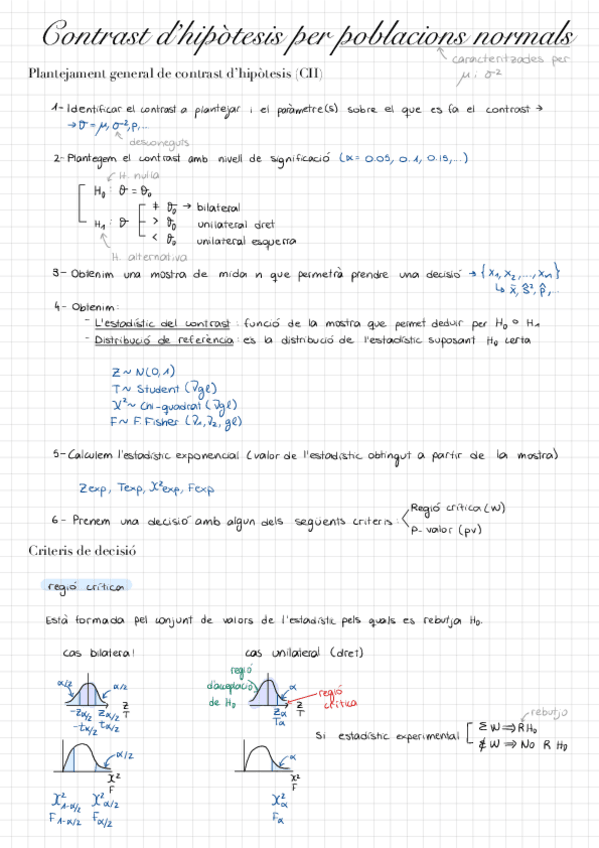 Contrast d'hipòtesis per poblacions normals
caracteritzades per
μ i σ²
Plantejament general de contrast d'hipòtesis (CH)
1- Identificar el contrast a plantejar i el paràmetre(s) sobre el que es fa el contrast →
→ θ = μ, σ², p,...
desconeguts
2- Plantegem el contrast amb nivell de significació (α= 0.05, 0.1, 0.15,...)
H. nul·la
H₀ : θ = θ₀
≠ θ₀ → bilateral
H₁ : θ > θ₀ unilateral dret
< θ₀ unilateral esquerra
H. alternativa
3- Obtenim una mostra de mida n que permetrà prendre una decisió → {x₁, x₂, ..., xn}
↳ x̄, Ŝ², p̂,...
4- Obtenim:
- L'estadístic del contrast : funció de la mostra que permet deduir per H₀ o H₁
- Distribució de referència : es la distribució de l'estadístic suposant H₀ certa
Z ~ N(0,1)
T ~ Student (νgl)
X² ~ Chi-quadrat (νgl)
F ~ F. Fisher (ν₁, ν₂, gl)
5- Calculem l'estadístic exponencial (valor de l'estadístic obtingut a partir de la mostra)
Zexp, Texp, X²exp, Fexp
6- Prenem una decisió amb algun dels següents criteris:
Regió crítica (W)
P-valor (pv)
Criteris de decisió
regió crítica
Està formada pel conjunt de valors de l'estadístic pels quals es rebutja H₀.
cas bilateral
cas unilateral (dret)
regió
d'acceptació
de H₀
α/2
α/2
α
regió
crítica
-Zα/2 Zα/2 Z
-tα/2 tα/2 T
Zα Z
Tα T
rebutjo
Si estadístic experimental
∈ W ⇒ R H₀
∉ W ⇒ No R H₀
α/2
α
X²
F
X²
F
X²1-α/2 X²α/2
F1-α/2 Fα/2
X²α
Fα